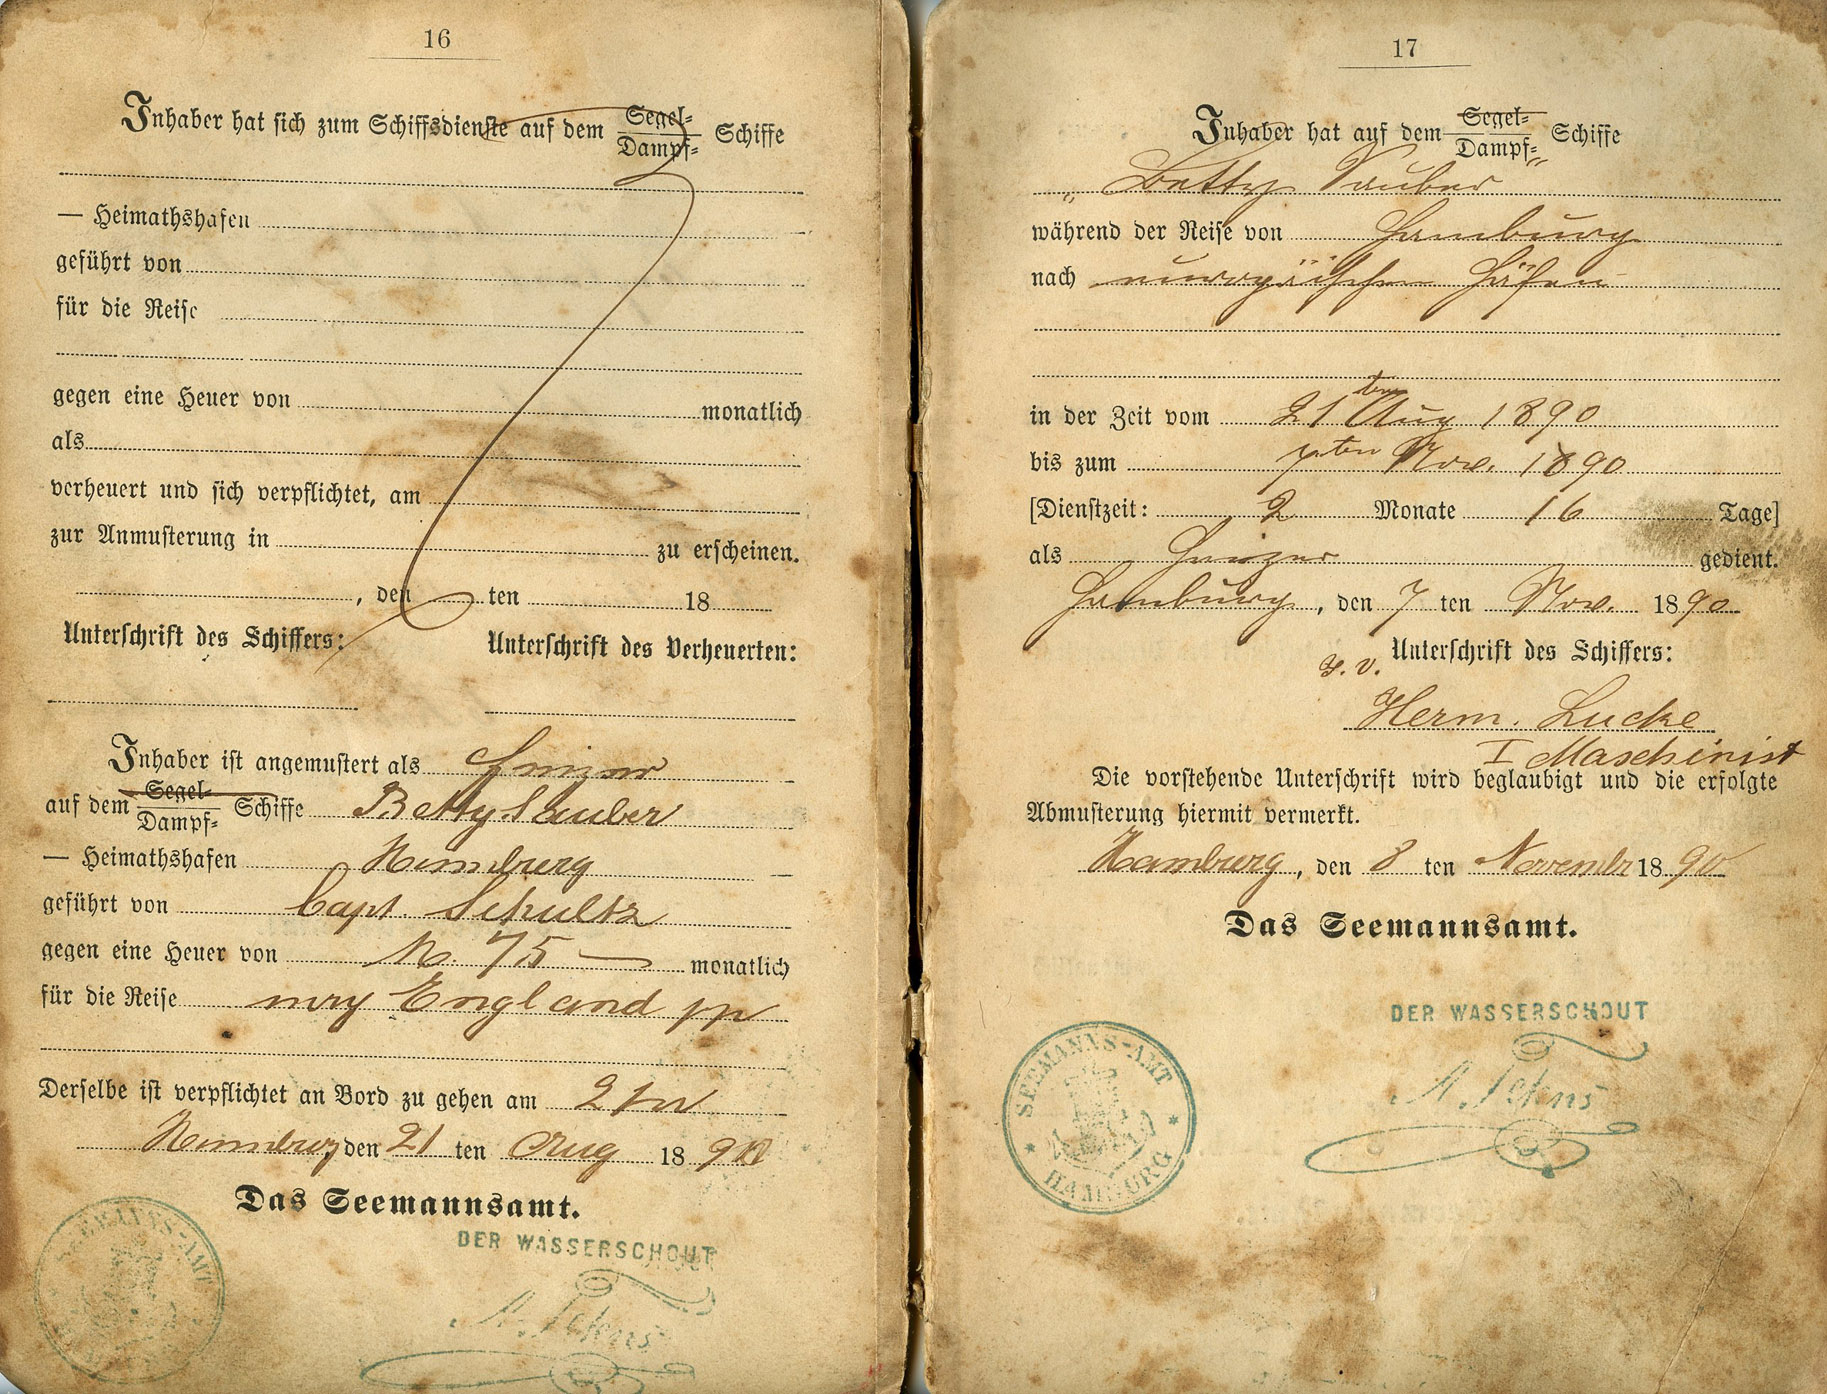 16
Inhaber hat sich zum Schiffsdienste auf dem Segel-
Dampf- Schiffe
— Heimathshafen
geführt von
für die Reise
gegen eine Heuer von monatlich
als
verheuert und sich verpflichtet, am
zur Anmusterung in zu erscheinen.
, den ten 18
Unterschrift des Schiffers: Unterschrift des Verheuerten:
Inhaber ist angemustert als Heizer
auf dem Segel-
Dampf- Schiffe Betty Sauber
— Heimathshafen Hamburg
geführt von Capt. Schultz
gegen eine Heuer von M. 75 — monatlich
für die Reise England pp
Derselbe ist verpflichtet an Bord zu gehen am 21
Hamburg, den 21 ten Aug 1890
Das Seemannsamt.
DER WASSERSCHOUT
SEEMANNS-AMT
17
Inhaber hat auf dem Segel-
Dampf- Schiffe
„ Betty Sauber “
während der Reise von Hamburg
nach europäischen Häfen
in der Zeit vom 21ten Aug 1890
bis zum 7ten Nov. 1890
[Dienstzeit: 2 Monate 16 Tage]
als Heizer gedient.
Hamburg, den 7 ten Nov. 1890
Unterschrift des Schiffers:
Herm. Lucke
I Maschinist
Die vorstehende Unterschrift wird beglaubigt und die erfolgte
Abmusterung hiermit vermerkt.
Hamburg, den 8 ten November 1890
Das Seemannsamt.
DER WASSERSCHOUT
SEEMANNS-AMT
HAMBURG